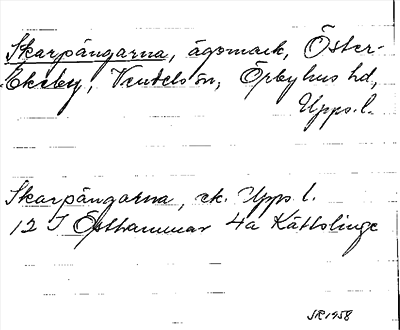 Skarpängarna, ägomark, Öster-
Ekeby, Ventelsön, Örbyhus hd,
Upps. l.
Skarpängarna, ek. Upps. l.
12 I Östhammar 4a Kättslinge
SR 1958